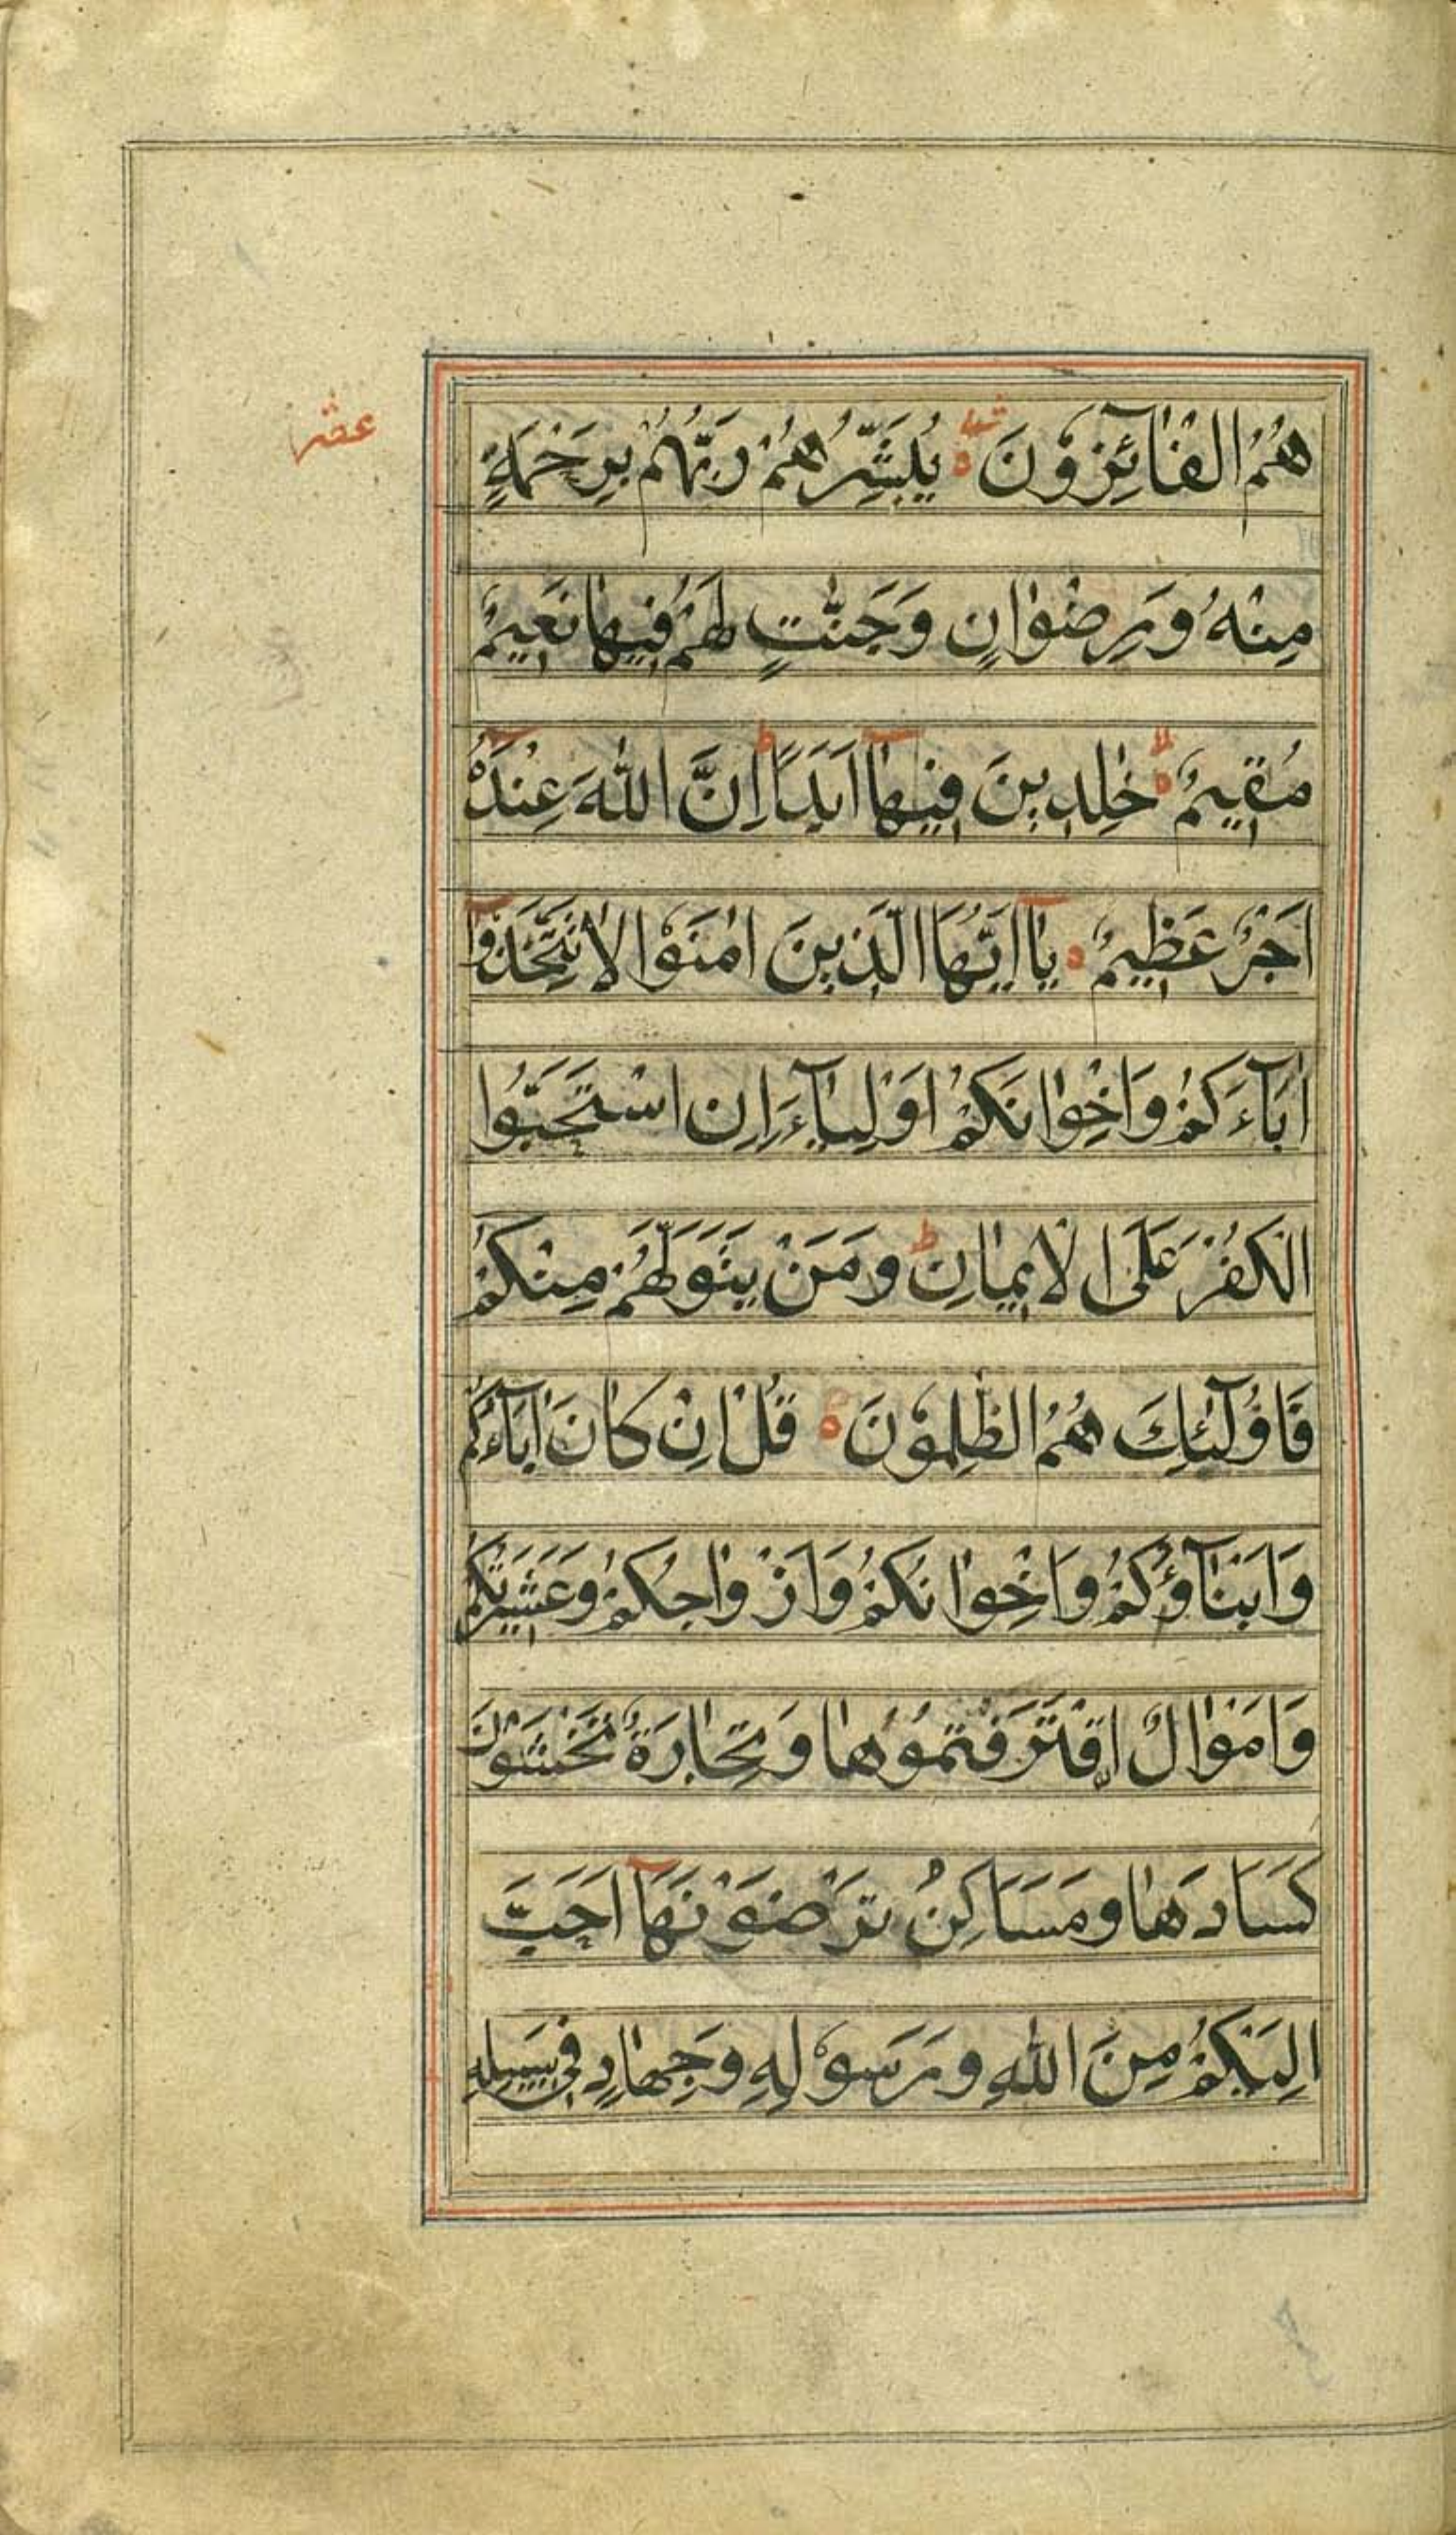 عشر
هُمُ الْفَآئِزُوْنَ ۝ يُبَشِّرُهُمْ رَبُّهُمْ بِرَحْمَةٍ
مِنْهُ وَرِضْوَانٍ وَجَنّٰتٍ لَهُمْ فِيهَا نَعِيمٌ
مُقِيمٌ ۝ خٰلِدِينَ فِيهَآ اَبَدًا ط اِنَّ اللّٰهَ عِنْدَهُ
اَجْرٌ عَظِيمٌ ۝ يَآ اَيُّهَا الَّذِينَ اٰمَنُوْا لَا تَتَّخِذُوْآ
اٰبَآءَكُمْ وَاِخْوَانَكُمْ اَوْلِيَآءَ اِنِ اسْتَحَبُّوا
الْكُفْرَ عَلَى الْاِيمَانِ ط وَمَنْ يَتَوَلَّهُمْ مِنْكُمْ
فَاُوْلٰٓئِكَ هُمُ الظّٰلِمُوْنَ ۝ قُلْ اِنْ كَانَ اٰبَآءُكُمْ
وَاَبْنَآؤُكُمْ وَاِخْوَانُكُمْ وَاَزْوَاجُكُمْ وَعَشِيرَتُكُمْ
وَاَمْوَالٌ اِقْتَرَفْتُمُوْهَا وَتِجَارَةٌ تَخْشَوْنَ
كَسَادَهَا وَمَسَاكِنُ تَرْضَوْنَهَآ اَحَبَّ
اِلَيْكُمْ مِنَ اللّٰهِ وَرَسُوْلِهِ وَجِهَادٍ فِى سَبِيلِهِ